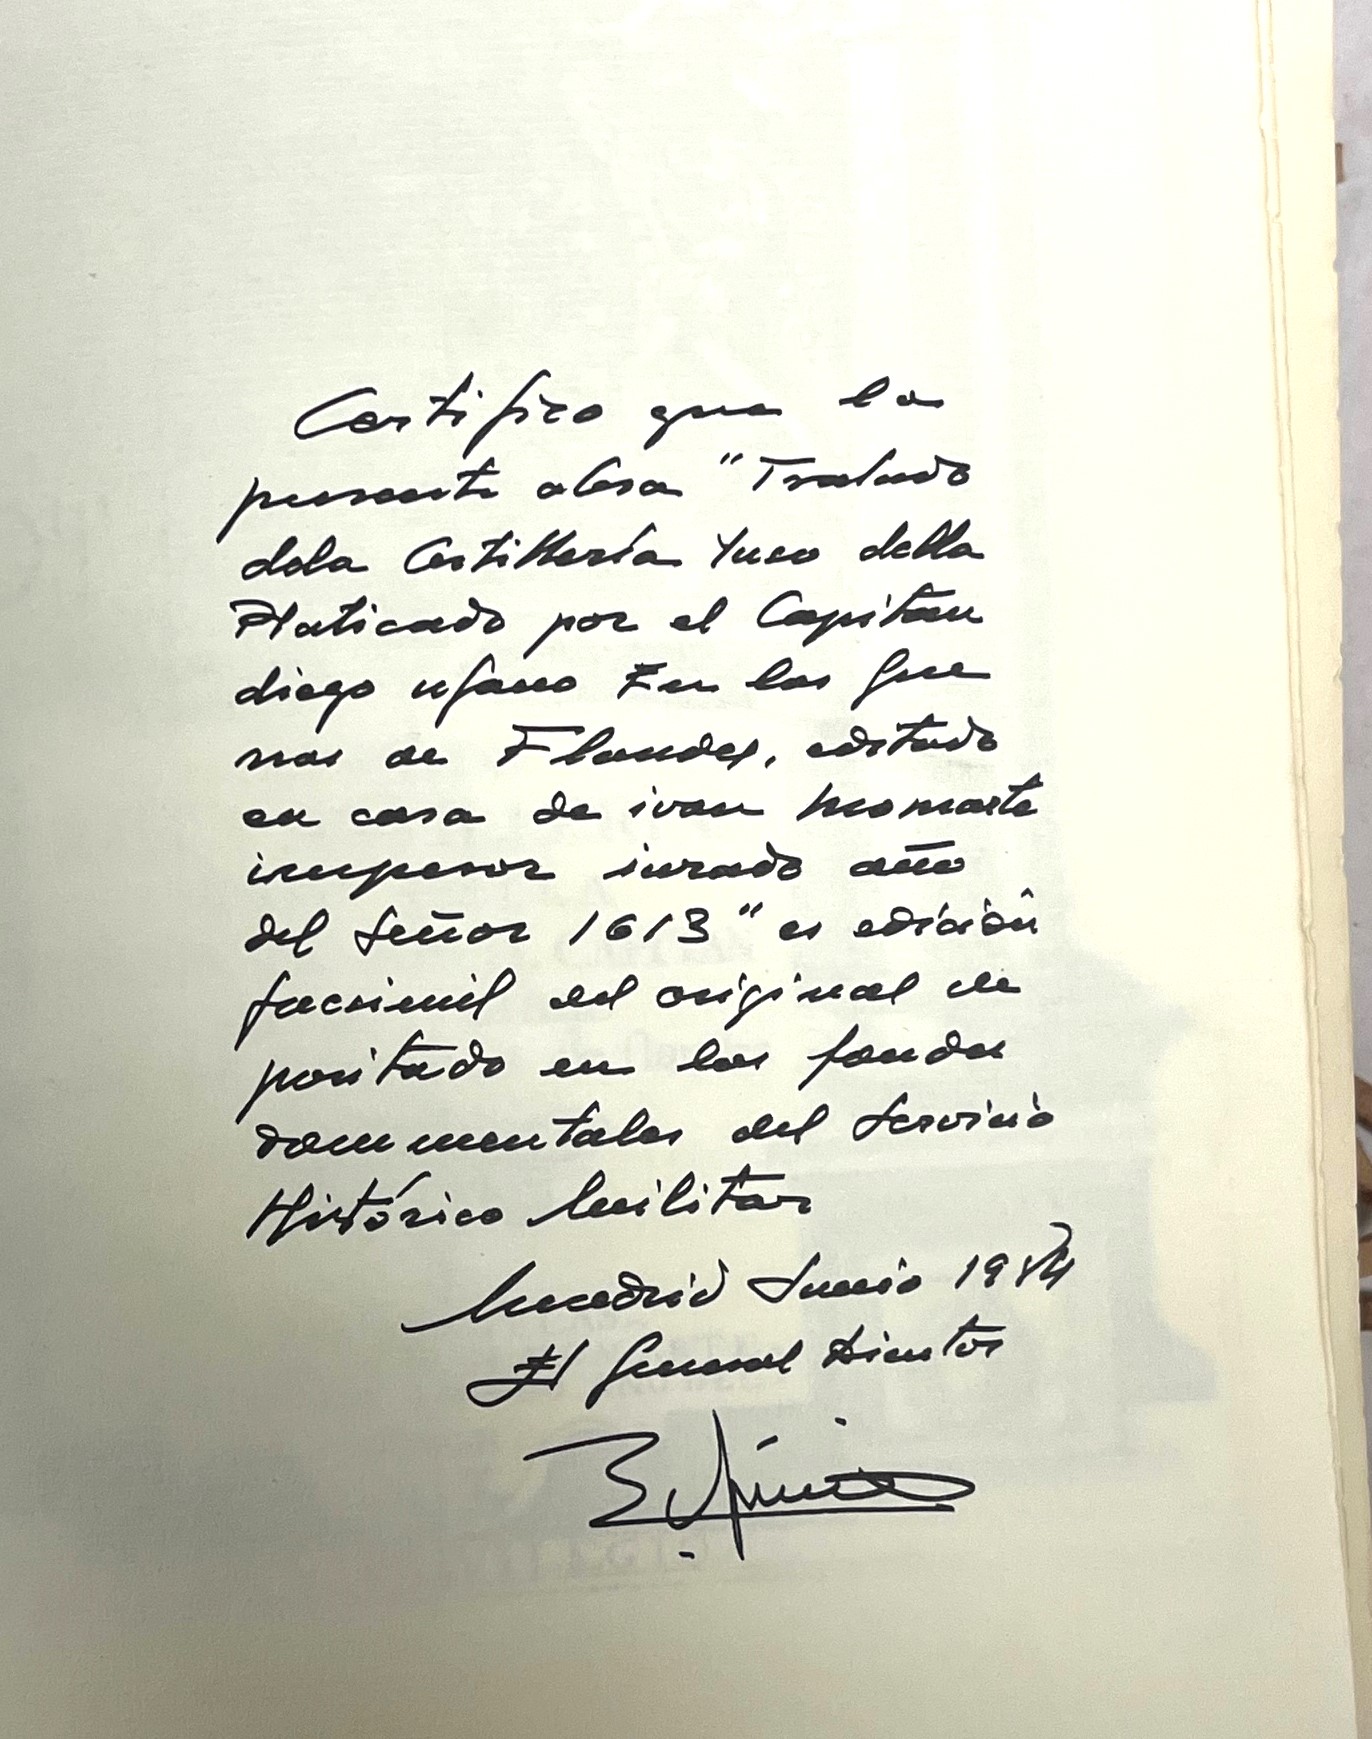 Certifico que la
presente obra "Tratado
dela Artillería yuso della
Platicado por el Capitan
diego ufano En las Gue
rras de Flandes, editado
en casa de ivan Momarte
impresor iurado año
del Señor 1613" es edición
facsimil del original de
positado en los fondos
documentales del Servicio
Histórico Militar
Madrid Junio 1984
El General Director